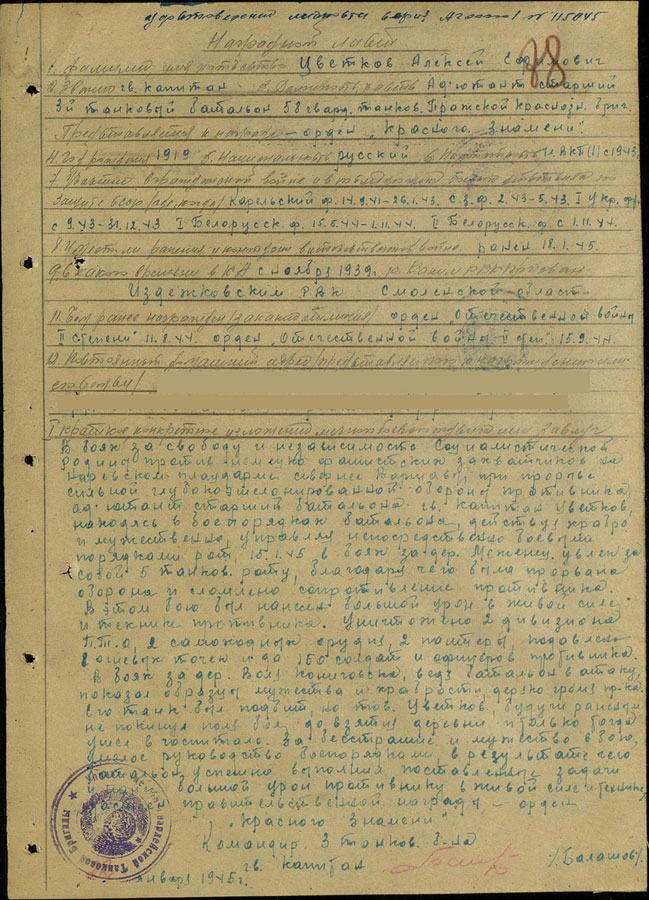 Наградной лист
1. Фамилия имя отчество Цветков Алексей Ефимович
88
2. Звание гв. капитан 3. Должность, часть Адъютант старший
3й танковый батальон 58 гвард. танков. Пражской Краснозн. бриг.
Представляется к награде – орден „Красного Знамени".
4. Год рождения 1919 5. Национальность русский 6. Партийность чл. ВКП(б) с 1943г.
7. Участие в гражданской войне и в последующих боевых действиях по
защите СССР Карельский ф. 14.9.41-26.1.43. С.З.Ф. 2.43-5.43. I Укр. фр.
с 9.43-31.12.43 I Белорусск. ф. 15.5.44-1.11.44. II Белорусск. ф. с 1.11.44.
8. Имеет ли ранения и контузии в отечественной войне ранен 18.1.45.
9. С какого времени в КА с ноября 1939г. 10. Каким РВК призван
Издежковским РВК Смоленской области
11. Чем ранее награжден /за какие отличия/ орден Отечественной войны
II степени" 11.8.44. орден „Отечественной войны II степ" 15.9.44.
12. Постоянный домашний адрес /представляемого к награждению или
семьи/
I Краткое конкретное изложение личного боевого подвига или заслуг
В боях за свободу и независимость Социалистической
Родины против немецко фашистских захватчиков на
Наревском плацдарме севернее Варшавы, при прорыве
сильной глубокоэшелонированной обороны противника,
ад'ютант старший батальона гв. капитан Цветков,
находясь в боепорядках батальона, действуя храбро,
и мужественно, управлял непосредственно боевыми
порядками рот, 15.1.45 в боях за дер. увлек за
собой 5 танков. роту, благодаря чего была прорвана
оборона и сломлено сопротивление противника.
В этом бою был нанесен большой урон в живой силе
и технике противника. Уничтожено 2 дивизиона
П.Т.О, 2 самоходных орудия, 2 пантеры, подавлено
8 огневых точек и до 150 солдат и офицеров противника.
В боях за дер. Воля ведя батальон в атаку,
показал образцы мужества и храбрости, дерзко громя пр-ка.
Его танк был подбит, но тов. Цветков, будучи раненым
не покинул поля боя, до взятия деревни и только тогда
ушел в госпиталь. За бесстрашие и мужество в бою,
умелое руководство боепорядками, в результате чего
батальон успешно выполнил поставленные задачи
большой урон противнику в живой силе и технике,
правительственной награды – орден
„Красного Знамени"
Командир 3 танков. б-на
гв. капитан /Балашов/.
января 1945г.
гвардейской Танковой Бригады